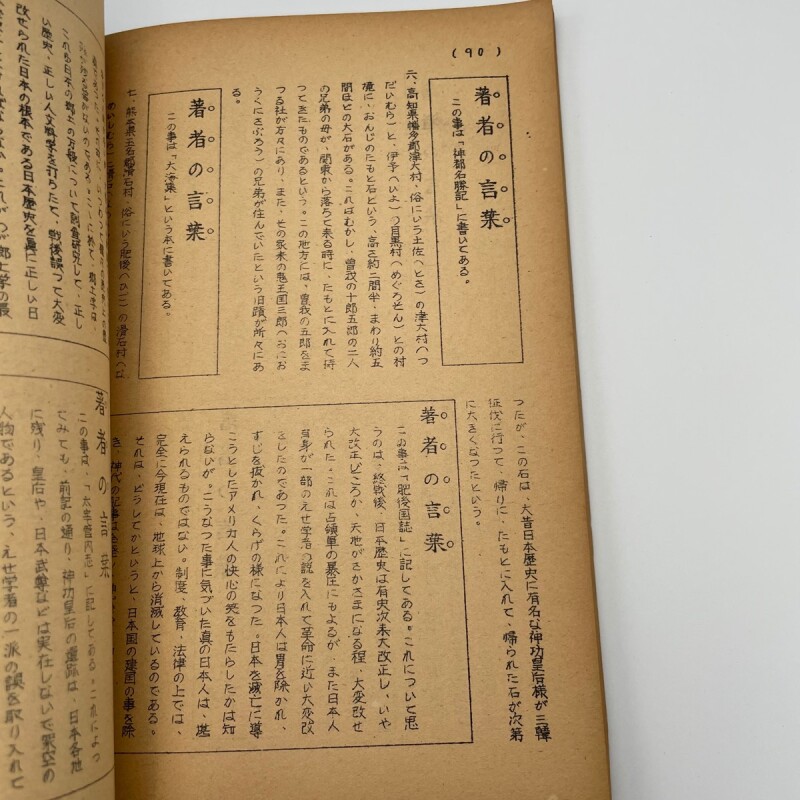 (90)
著者の言葉
この事は「神都名勝記」に書いてある。
六、高知県幡多郡津大村、俗にいう土佐(とさ)の津大村(つ
だいむら)と、伊予(いよ)の目黒村(めぐろそん)との村
境に、おんじのたもと石という、高さ約二間半、まわり約五
間ほどの大石がある。これはむかし、曽我の十郎五郎の二人
の兄弟の母が、関東から落ちて来る時に、たもとに入れて持
つてきたものであるという。この地方には、曽我の五郎をま
つる社が方々にあり、また、その家来の鬼王団三郎(おにお
うどうざぶろう)の兄弟が住んでいたという旧蹟が所々にあ
る。
著者の言葉
この事は「大海集」という本に書いてある。
七、熊本県玉名郡滑石村、俗にいう肥後(ひご)の滑石村(な
つたが、この石は、大昔日本歴史に有名な神功皇后様が三韓
征伐に行つて、帰りに、たもとに入れて、帰られた石が次第
に大きくなつたという。
著者の言葉
この事は「肥後国誌」に記してある。これについて思
うのは、終戦後、日本歴史は有史以来大改正し、いや
大改正どころか、天地がさかさまになる程、大変改せ
られた。これは占領軍の暴圧にもよるが、また日本人
自身が一部のえせ学者の説を入れて革命に近い大変改
をしたのであつた。これにより日本人は骨を除かれ、
すじを抜かれ、くらげの様になつた。日本を滅亡に導
こうとしたアメリカ人の快心の笑をもたらしたかは知
らないが。こうなつた事に気づいた真の日本人は、堪
えられるものではない。制度、教育、法律の上では、
完全に今現在は、地球上から消滅しているのである。
それは、どうしてかというと、日本国の建国の事を除
い歴史、正しい人文科学を打ちたて、戦後誤つて大変
改せられた日本の根本である日本歴史を真に正しい日
著者の言葉
この事は、「太宰管内志」に記してある。これによつ
てみても、前記の通り、神功皇后の遺跡は、日本各地
に残り、皇后や、日本武尊などは実在しないで架空の
人物であるという、えせ学者の一派の誤を取り入れて